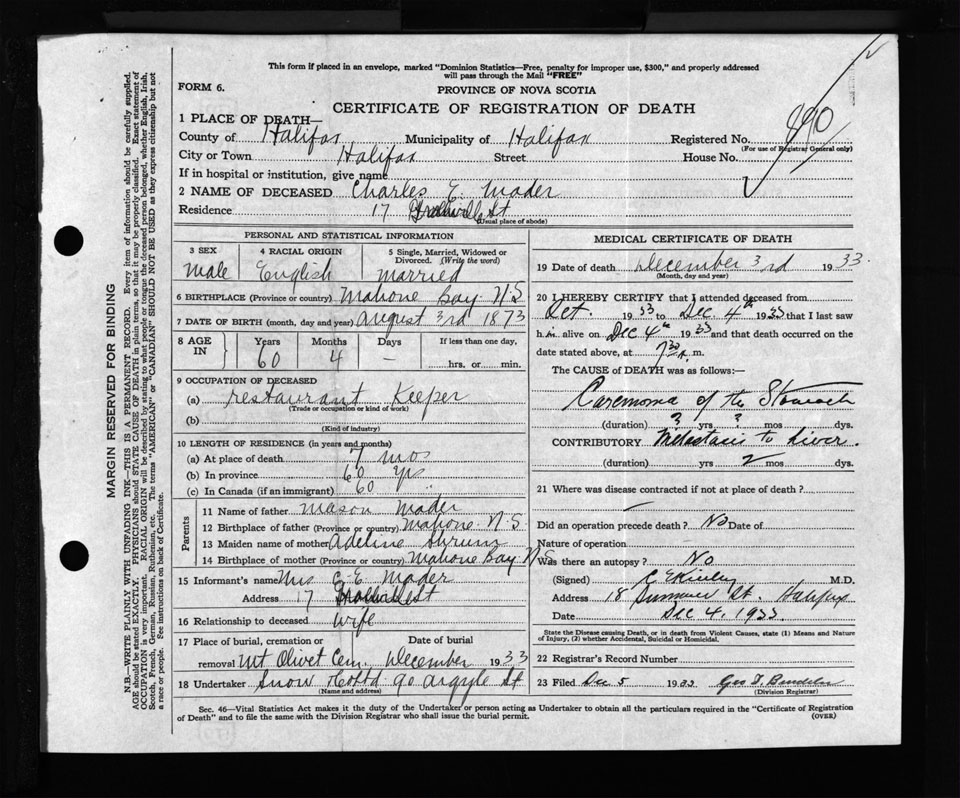 This form if placed in an envelope, marked "Dominion Statistics—Free, penalty for improper use, $300," and properly addressed
will pass through the Mail "FREE"
FORM 6.
PROVINCE OF NOVA SCOTIA
CERTIFICATE OF REGISTRATION OF DEATH
1 PLACE OF DEATH—
County of Halifax Municipality of Halifax Registered No. 890
(For use of Registrar General only)
City or Town Halifax Street House No.
If in hospital or institution, give name
2 NAME OF DECEASED Charles E. Mader
Residence 17 St
(Usual place of abode)
PERSONAL AND STATISTICAL INFORMATION
3 SEX 4 RACIAL ORIGIN 5 Single, Married, Widowed or
Divorced. (Write the word)
Male English Married
6 BIRTHPLACE (Province or country) Mahone Bay N S
7 DATE OF BIRTH (month, day and year) August 3rd 1873
8 AGE IN Years Months Days If less than one day,
60 4 – hrs. or min.
9 OCCUPATION OF DECEASED
(a) restaurant Keeper
(Trade or occupation or kind of work)
(b)
(Kind of industry)
10 LENGTH OF RESIDENCE (in years and months)
(a) At place of death 7 mos
(b) In province 60 yrs
(c) In Canada (if an immigrant) 60 "
Parents
11 Name of father Mason Mader
12 Birthplace of father (Province or country) Mahone N.S.
13 Maiden name of mother Adeline
14 Birthplace of mother (Province or country) Mahone Bay N S
15 Informant's name Mrs C. E. Mader
Address 17 St
16 Relationship to deceased Wife
17 Place of burial, cremation or Date of burial
removal Mt Olivet Cem. December 1933
18 Undertaker Snow & Co Ltd 90 Argyle St
(Name and address)
MEDICAL CERTIFICATE OF DEATH
19 Date of death December 3rd 1933
(Month, day and year)
20 I HEREBY CERTIFY that I attended deceased from
Oct. 1933 to Dec 4th 1933 that I last saw
him alive on Dec 4th 1933 and that death occurred on the
date stated above, at 7 30 m.
The CAUSE of DEATH was as follows:—
Carcinoma of the Stomach
(duration) ? yrs ? mos dys.
CONTRIBUTORY Metastasis to liver.
(duration) yrs 2 mos dys.
21 Where was disease contracted if not at place of death?
—
Did an operation precede death? No Date of
Nature of operation
Was there an autopsy? No
(Signed) M.D.
Address 18 Summer St. Halifax
Date Dec 4, 1933
State the Disease causing Death, or in death from Violent Causes, state (1) Means and Nature
of Injury, (2) whether Accidental, Suicidal or Homicidal.
22 Registrar's Record Number
23 Filed Dec 5 1933 Geo
(Division Registrar)
Sec. 46—Vital Statistics Act makes it the duty of the Undertaker or person acting as Undertaker to obtain all the particulars required in the "Certificate of Registration
of Death" and to file the same with the Division Registrar who shall issue the burial permit.
(OVER)
MARGIN RESERVED FOR BINDING
N.B.—WRITE PLAINLY WITH UNFADING INK—THIS IS A PERMANENT RECORD. Every item of information should be carefully supplied.
AGE should be stated EXACTLY. PHYSICIANS should STATE CAUSE OF DEATH in plain terms, so that it may be properly classified. Exact statement of
OCCUPATION is very important. RACIAL ORIGIN will be described by stating to what people or tongue the deceased person belonged, whether English, Irish,
Scotch, French, German, Russian, Ruthenian, etc. The terms "AMERICAN" or "CANADIAN" SHOULD NOT BE USED as they express citizenship but not
a race or people. See instructions on back of Certificate.